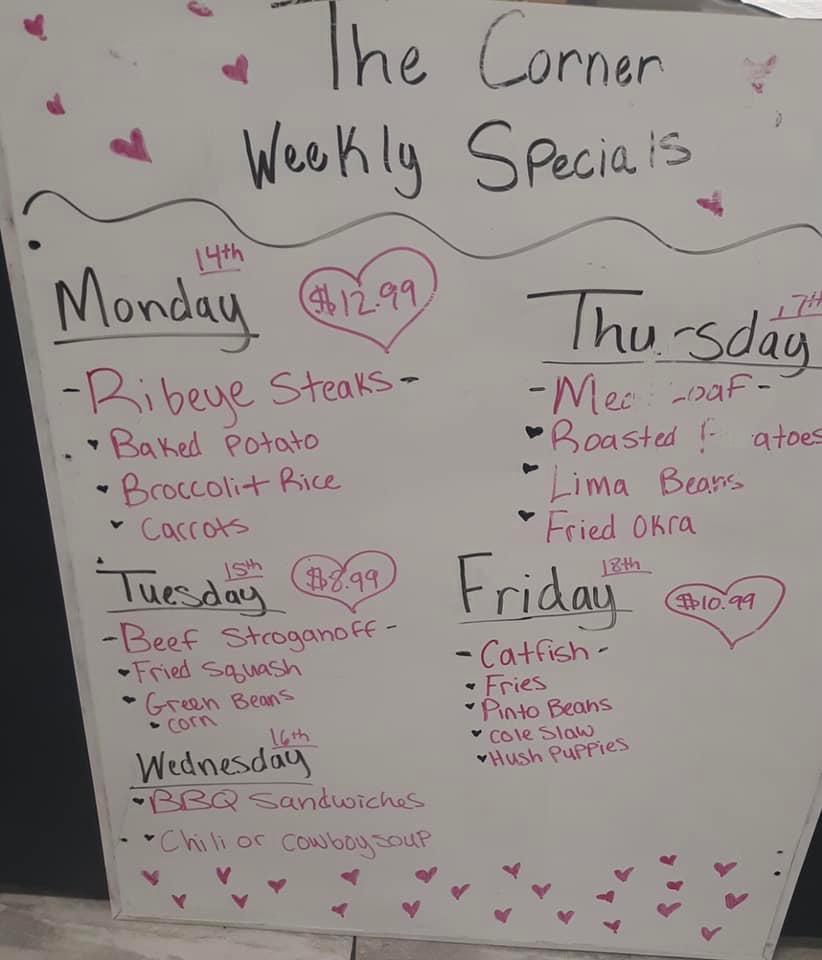 The Corner
Weekly Specials
Monday 14th $12.99
-Ribeye Steaks-
Baked Potato
Broccoli + Rice
Carrots
Tuesday 15th $8.99
-Beef Stroganoff-
Fried Squash
Green Beans
Corn
Wednesday 16th
BBQ Sandwiches
Chili or Cowboy soup
Thursday 17th
Roasted
Lima Beans
Fried Okra
Friday 18th $10.99
-Catfish-
Fries
Pinto Beans
Cole Slaw
Hush Puppies